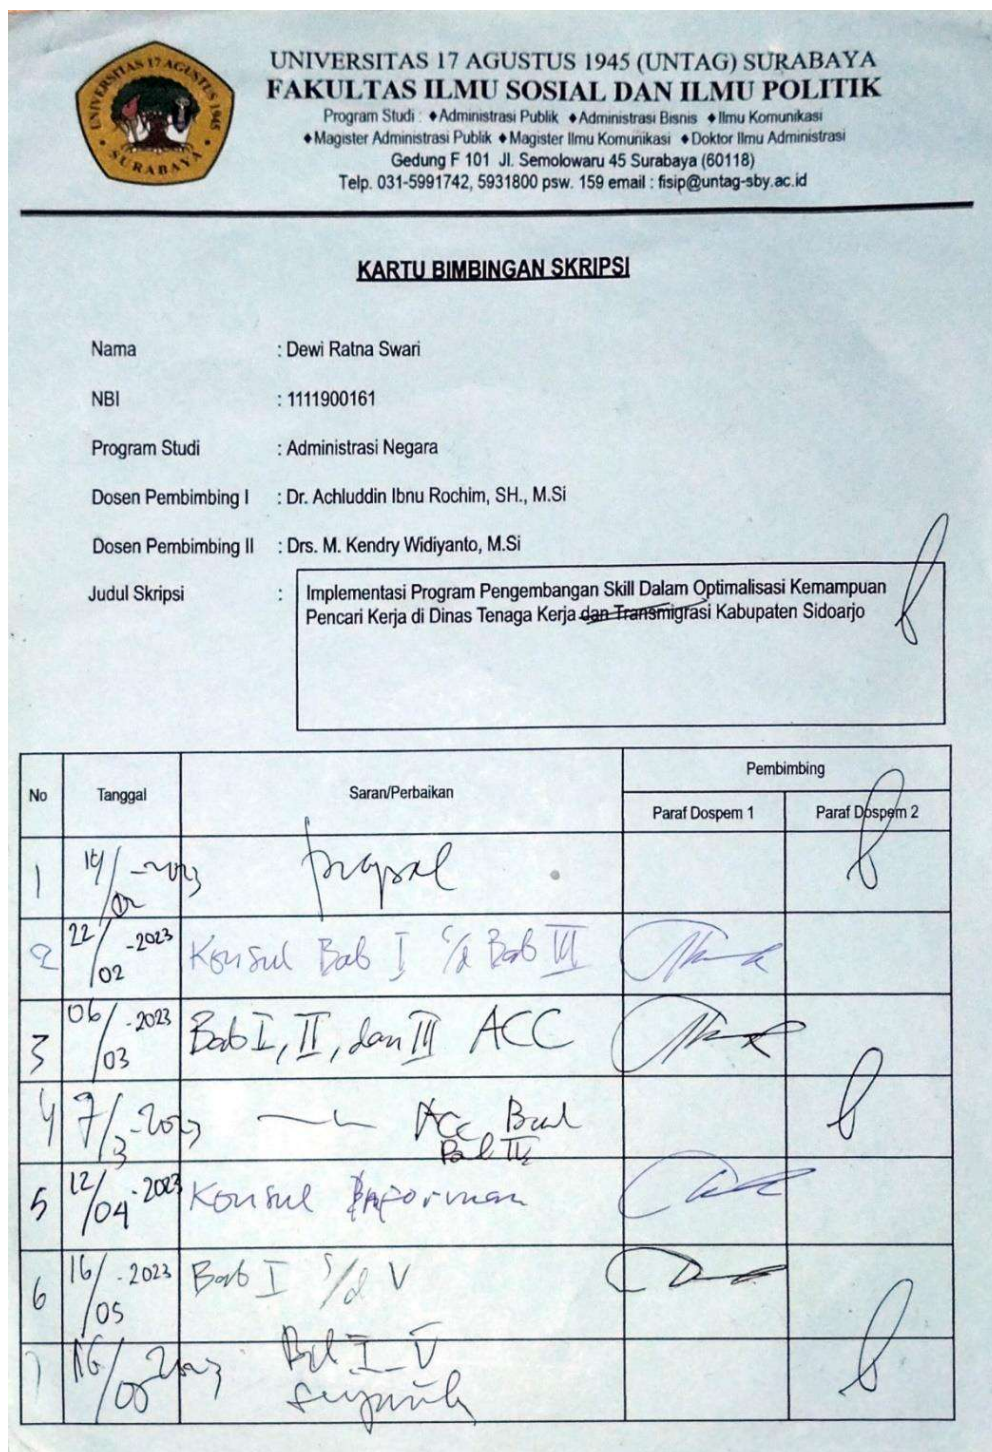 UNIVERSITAS 17 AGUSTUS 1945
SURABAYA
UNIVERSITAS 17 AGUSTUS 1945 (UNTAG) SURABAYA
FAKULTAS ILMU SOSIAL DAN ILMU POLITIK
Program Studi : ♦Administrasi Publik ♦Administrasi Bisnis ♦Ilmu Komunikasi
♦Magister Administrasi Publik ♦Magister Ilmu Komunikasi ♦Doktor Ilmu Administrasi
Gedung F 101 Jl. Semolowaru 45 Surabaya (60118)
Telp. 031-5991742, 5931800 psw. 159 email : fisip@untag-sby.ac.id
KARTU BIMBINGAN SKRIPSI
Nama : Dewi Ratna Swari
NBI : 1111900161
Program Studi : Administrasi Negara
Dosen Pembimbing I : Dr. Achluddin Ibnu Rochim, SH., M.Si
Dosen Pembimbing II : Drs. M. Kendry Widiyanto, M.Si
Judul Skripsi : Implementasi Program Pengembangan Skill Dalam Optimalisasi Kemampuan
Pencari Kerja di Dinas Tenaga Kerja dan Transmigrasi Kabupaten Sidoarjo
No Tanggal Saran/Perbaikan Pembimbing
Paraf Dospem 1 Paraf Dospem 2
1 14/02-2023
2 22/02-2023 Konsul Bab I s/d Bab III
3 06/03-2023 Bab I, II, dan III ACC
4 7/3-2023 ACC
5 12/04-2023 Konsul Informan
6 16/05-2023 Bab I s/d V
7 I-V